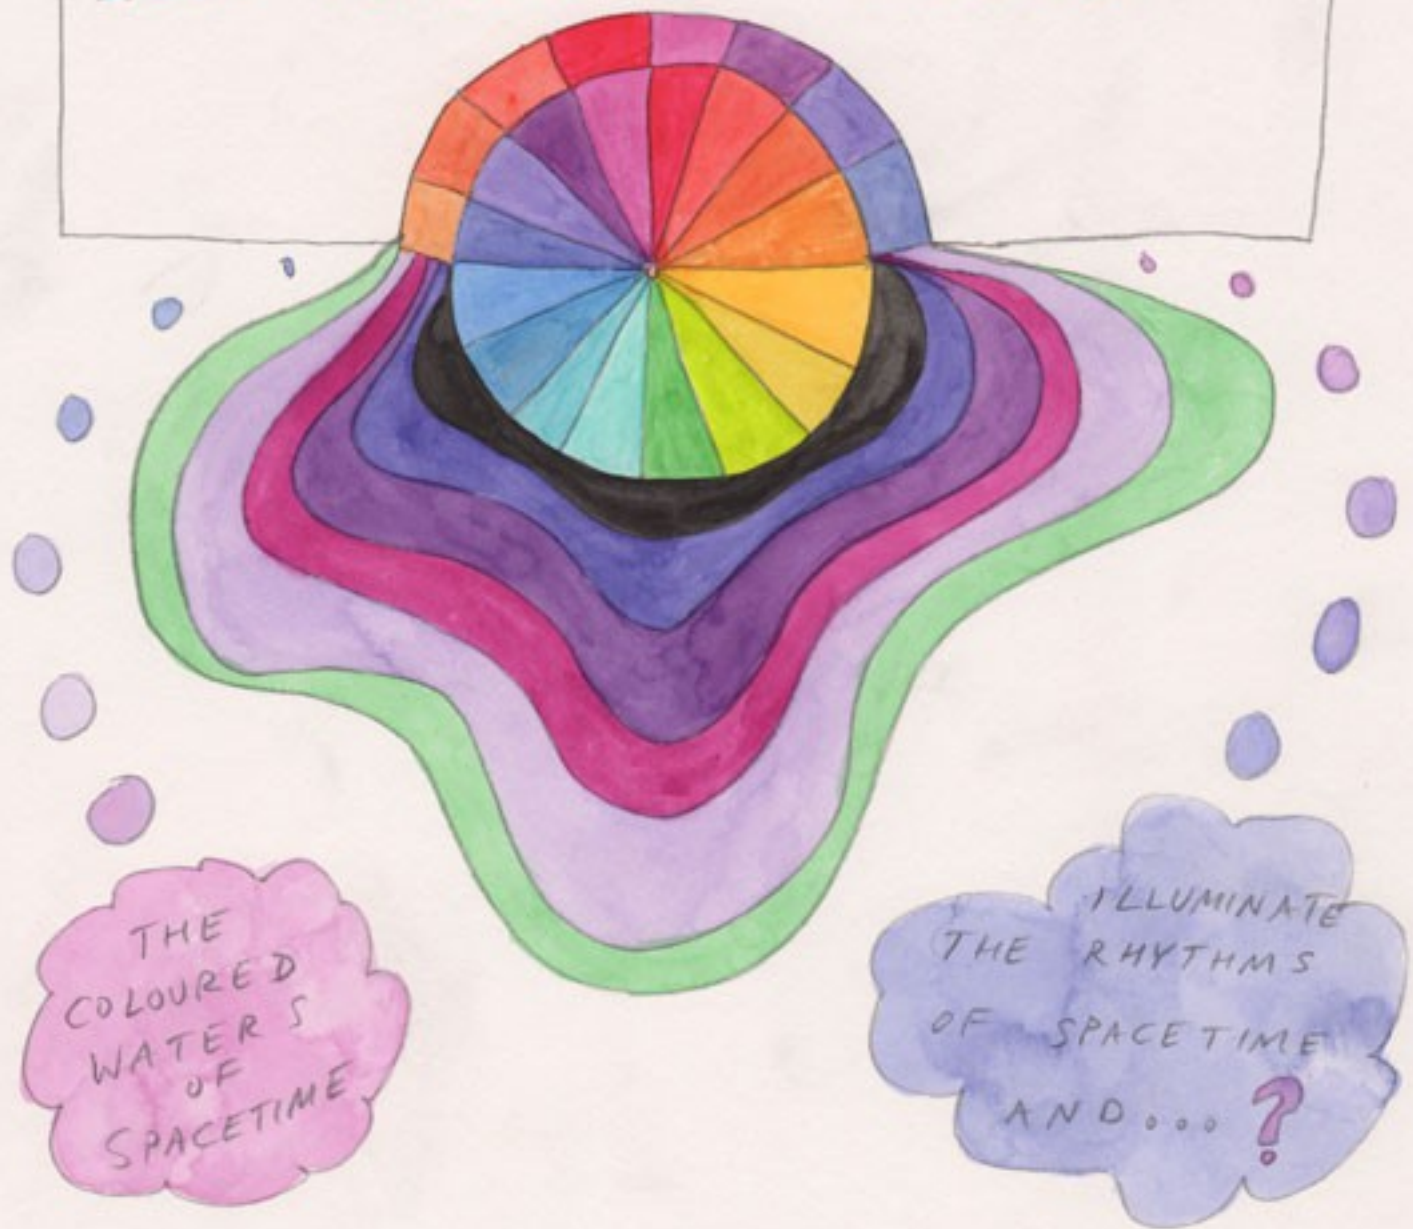 THE
COLOURED
WATERS
OF
SPACETIME
ILLUMINATE
THE RHYTHMS
OF SPACETIME
AND... ?